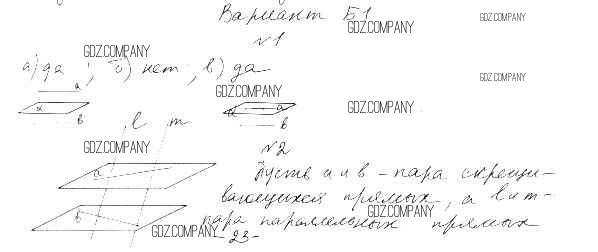 Вариант Б1
GDZ.COMPANY
GDZ.COMPANY
№1
GDZ.COMPANY
а) да ; б) нет ; в) да
GDZ.COMPANY
GDZ.COMPANY
а
α
в
α
а
в
GDZ.COMPANY
l m
GDZ.COMPANY
№2
а
Пусть а и в - пара скрещи-
вающихся прямых, а l и m -
GDZ.COMPANY
в
пара параллельных прямых
GDZ.COMPANY
- 23 -